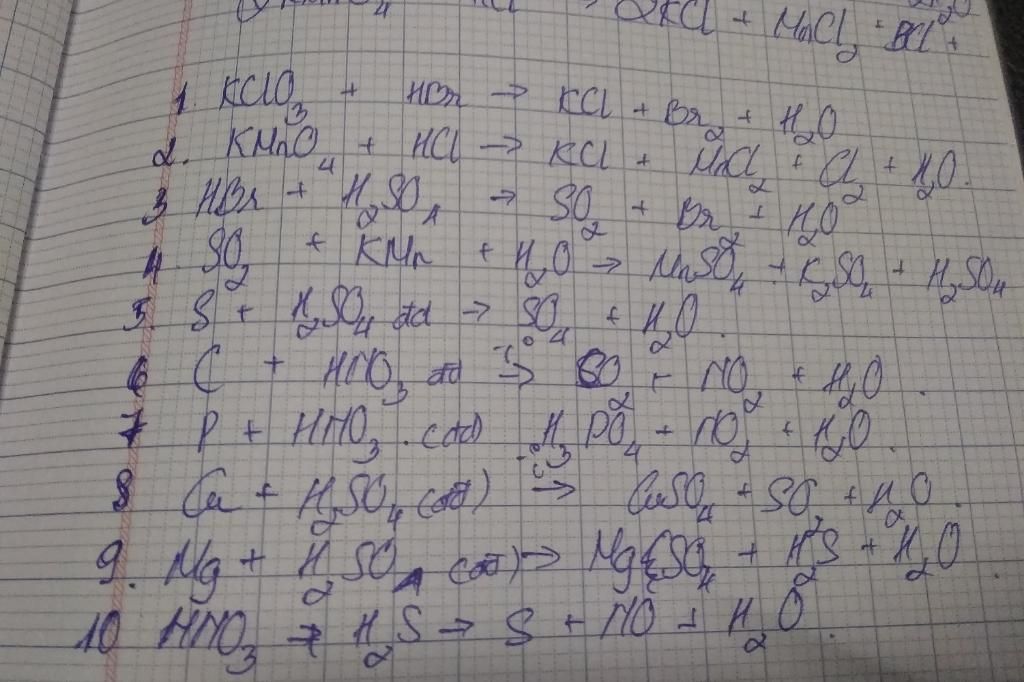 2KCl + MnCl2 +
1. KClO3 + HBr → KCl + Br2 + H2O
2. KMnO4 + HCl → KCl + MnCl2 + Cl2 + H2O.
3 HBr + H2SO4 → SO2 + Br2 + H2O
4. SO2 + KMn + H2O → MnSO4 + K2SO4 + H2SO4
5. S + H2SO4 đđ → SO4 + H2O.
6 C + HNO3 đđ t° → CO2 + NO2 + H2O.
7 P + HNO3 . (đđ) t° H3PO4 + NO2 + H2O.
8 Cu + H2SO4 (đđ) t° → CuSO4 + SO2 + H2O.
9. Mg + H2SO4 (đđ) → MgSO4 + H2S + H2O.
10 HNO3 + H2S → S + NO + H2O.